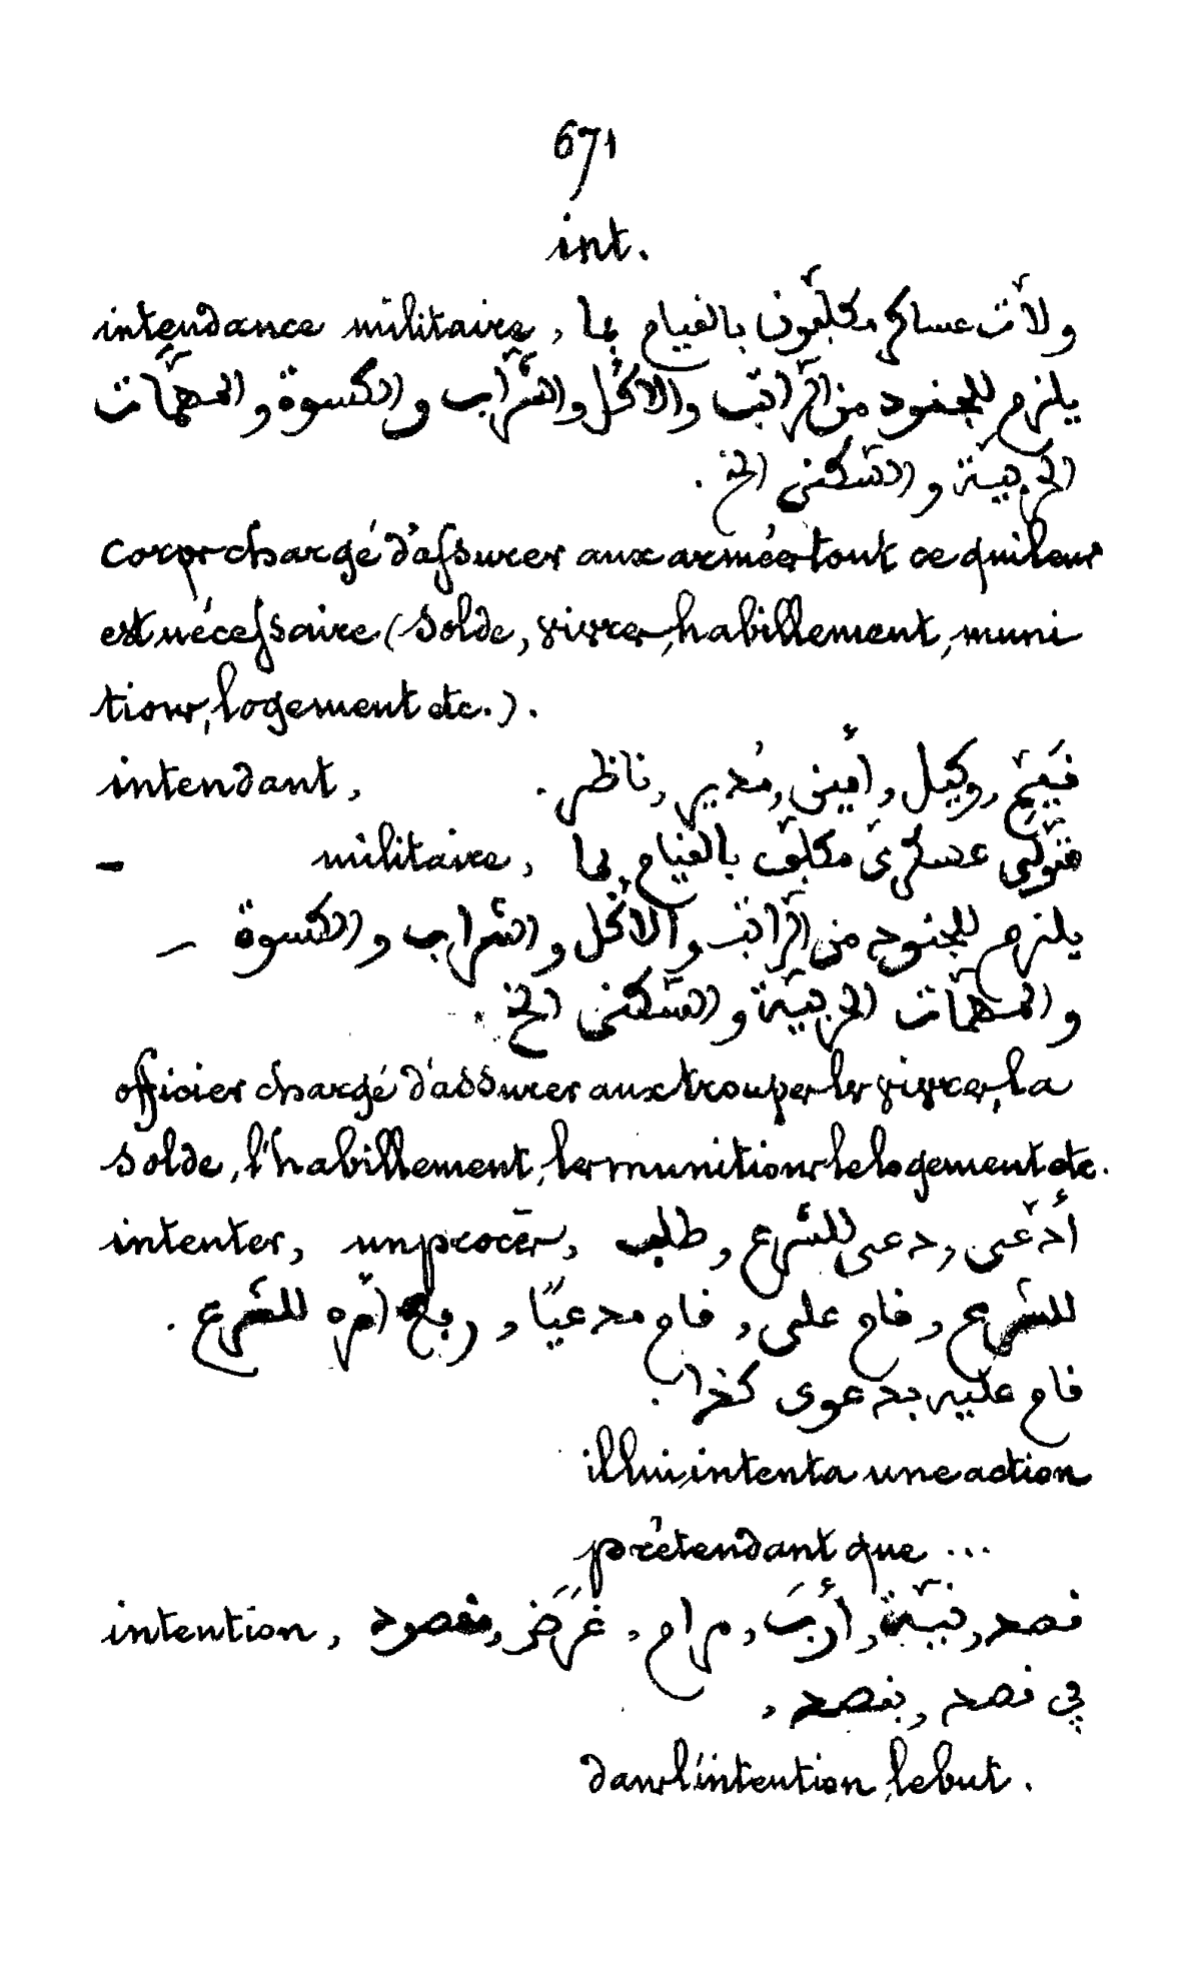 671
int.
intendance militaire, ولاّت عساكر مكلّفون بالقيام بما
يلزم للجنود من الرّاتب والأكْل والشّراب والكسوة والمهمّات
الحربيّة والسّكنى الخ.
Corps chargé d'assurer aux armées tout ce qui leur
est nécessaire (solde, vivres, habillement, muni
tions, logement etc.).
intendant, قَيِّم, وكيل, أمين, مُدير, ناظر.
— militaire, متولّي عسكريّ مكلّف بالقيام بما
يلزم للجنود من الرّاتب والأكْل والشّراب والكسوة –
والمهمّات الحربيّة والسّكنى الخ.
officier chargé d'assurer aux troupes les vivres, la
solde, l'habillement, les munitions le logement etc.
intenter, un procès, أدّعى, دعى للشّرع, طلب
للشّرع, قام على, قام مدعيًّا, رفع أمره للشّرع.
قام عليه بدعوى كذا.
il lui intenta une action
prétendant que ...
intention, قصد, نيّة, أرَب, مرام, غَرَض, مقصود
في قصد, بقصد,
dans l'intention, le but.